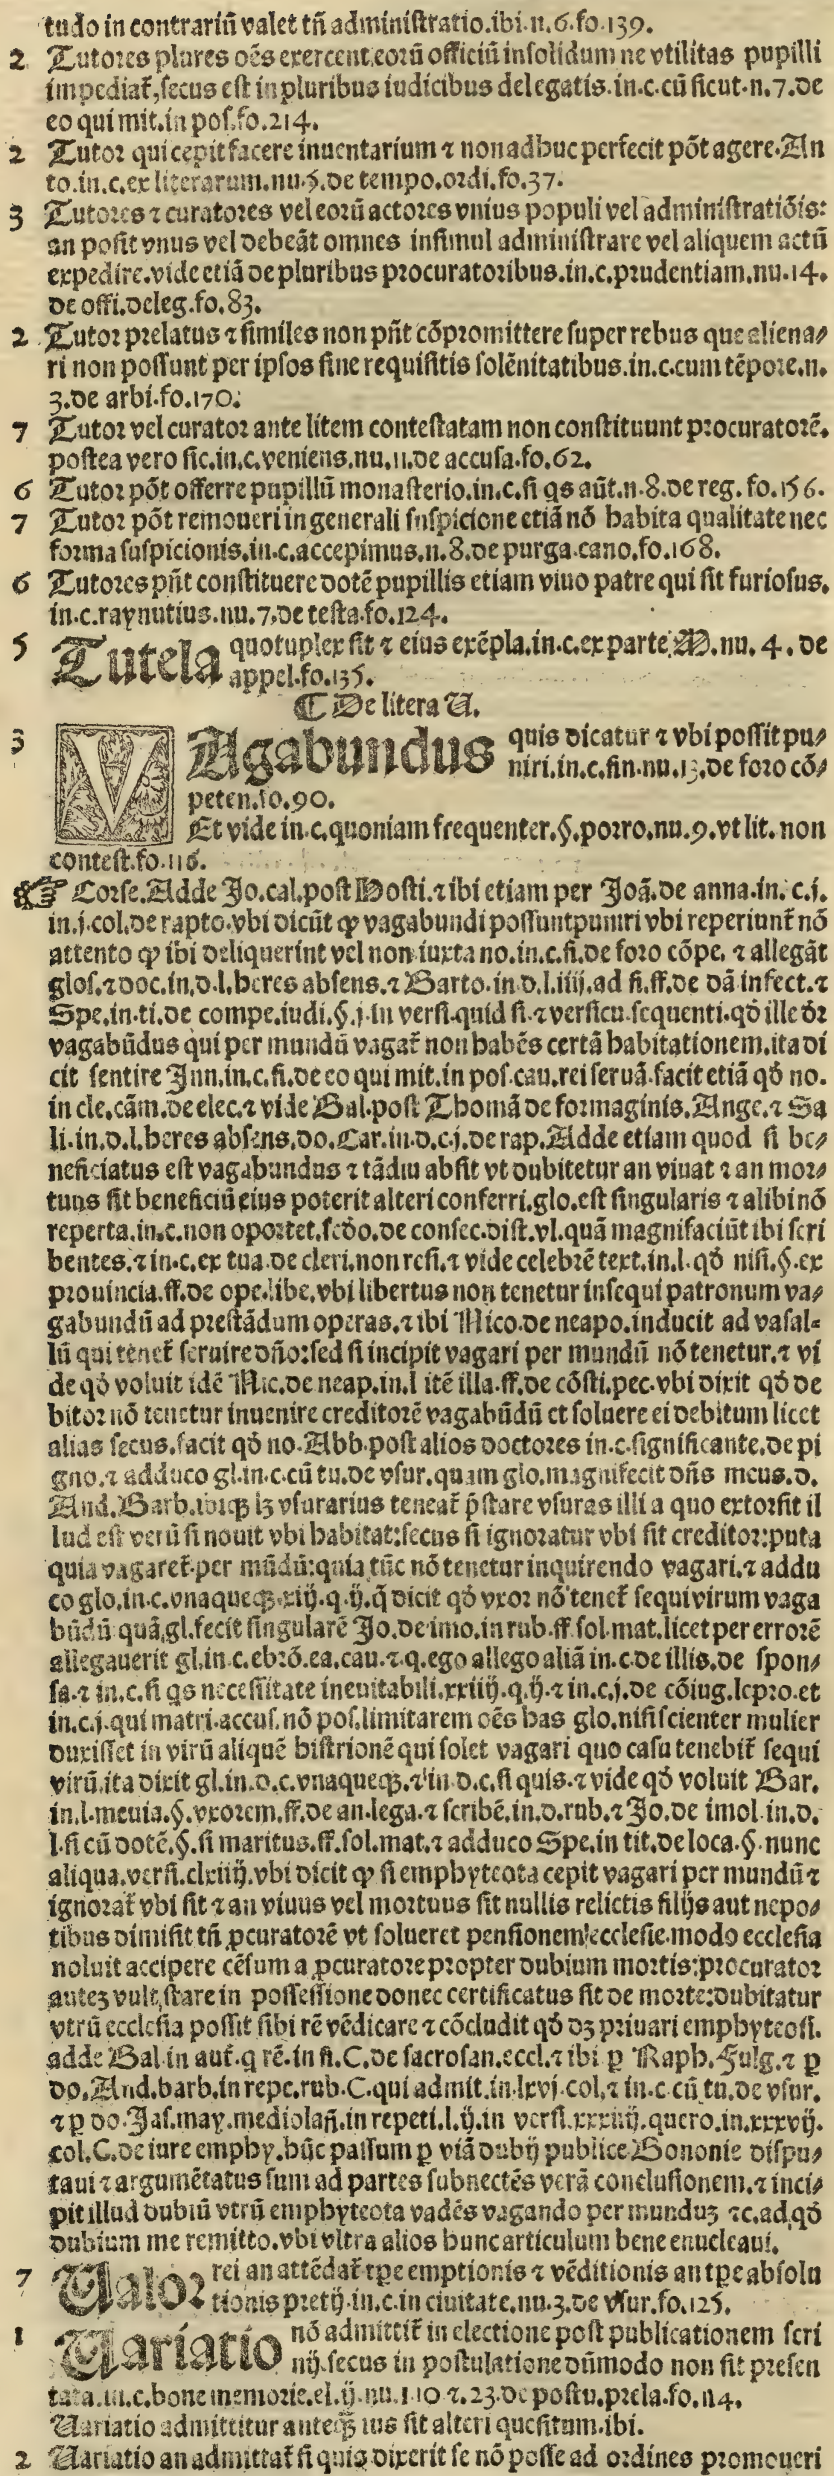 tudo in contrariū valet tñ administratio.ibi.n.6.fo.139.
2 Tutores plures oẽs exercent.eorū officiū insolidum ne vtilitas pupilli
impediat̃,secus est in pluribus iudicibus delegatis.in.c.cū sicut.n.7.de
eo qui mit.in pos.fo.214.
2 Tutor qui cepit facere inuentarium ⁊ non adhuc perfecit põt agere.An
to.in.c.ex literarum.nu.5.de tempo.ordi.fo.37.
3 Tutores ⁊ curatores vel eorū actores vnius populi vel administratiõis:
an posit vnus vel debeãt omnes insimul administrare vel aliquem actū
expedire.vide etiã de pluribus procuratoribus.in.c.prudentiam.nu.14.
de offi.deleg.fo.83.
2 Tutor prelatus ⁊ similes non pñt cõpromittere super rebus que aliena/
ri non possunt per ipsos sine requisitis solẽnitatibus.in.c.cum tẽpore.n.
3.de arbi.fo.170.
7 Tutor vel curator ante litem contestatam non constituunt procuratorẽ.
postea vero sic.in.c.veniens.nu.11.de accusa.fo.62.
6 Tutor põt offerre pupillū monasterio.in.c.si qs aũt.n.8.de reg.fo.156.
7 Tutor põt remoueri in generali suspicione etiã nõ habita qualitate nec
forma suspicionis.in.c.accepimus.n.8.de purga.cano.fo.168.
6 Tutores pñt constituere dotẽ pupillis etiam viuo patre qui sit furiosus.
in.c.raynutius.nu.7.de testa.fo.124.
5 Tutela quotuplex sit ⁊ eius exẽpla.in.c.ex parte.M.nu.4.de
appel.fo.135.
¶ De litera U.
3 VAgabundus quis dicatur ⁊ vbi possit pu/
niri.in.c.fin.nu.13.de foro cõ/
peten.fo.90.
Et vide in.c.quoniam frequenter.§.porro.nu.9.vt lit.non
contest.fo.116.
☞ Corse.Adde Jo.cal.post Hosti.⁊ ibi etiam per Joã.de anna.in.c.j.
in.j.col.de rapto.vbi dicũt ꝙ vagabundi possunt puniri vbi reperiunt̃ nõ
attento ꝙ ibi deliquerint vel non iuxta no.in.c.fi.de foro cõpe.⁊ allegãt
glos.⁊ doc.in.d.l.heres absens.⁊ Barto.in.d.l.iiij.ad fi.ff.de dã infect.⁊
Spe.in.ti.de compe.iudi.§.j.in versi.quid si.⁊ versicu.sequenti.qđ ille dr̃
vagabũdus qui per mundũ vagat̃ non habẽs certã habitationem.ita di
cit sentire Inn.in.c.fi.de eo qui mit.in pos.cau.rei seruã.facit etiã qđ no.
in cle.cãm.de elec.⁊ vide Bal.post Thomã de formaginis.Ange.⁊ Sa
li.in.d.l.heres absens.do.Car.in.d.c.j.de rap.Adde etiam quod si be/
neficiatus est vagabundus ⁊ tãdiu absit vt dubitetur an viuat ⁊ an mor/
tuus sit beneficiũ eius poterit alteri conferri.glo.est singularis ⁊ alibi nõ
reperta.in.c.non oportet.scđo.de consec.dist.vl.quã magnifaciũt ibi scri
bentes.⁊ in.c.ex tua.de cleri.non resi.⁊ vide celebrẽ text.in.l.qđ nisi.§.ex
prouincia.ff.de ope.libe.vbi libertus non tenetur insequi patronum va/
gabundũ ad prestãdum operas.⁊ ibi Nico.de neapo.inducit ad vasal=
lũ qui tenet̃ seruire dño:sed si incipit vagari per mundũ nõ tenetur.⁊ vi
de qđ voluit idẽ Nic.de neap.in.l itẽ illa.ff.de cõsti.pec.vbi dixit qđ de
bitor nõ tenetur inuenire creditorẽ vagabũdũ et soluere ei debitum licet
alias secus.facit qđ no.Abb.post alios doctores in.c.significante.de pi
gno.⁊ adduco gl.in.c.cũ tu.de vsur.quam glo.magnifecit dñs meus.d.
And.Barb.ibiqꝫ lꝫ vsurarius teneat̃ p̃stare vsuras illi a quo extorsit il
lud est verũ si nouit vbi habitat:secus si ignoratur vbi sit creditor:puta
quia vagaret̃.per mũdũ:quia tũc nõ tenetur inquirendo vagari.⁊ addu
co glo.in.c.vnaqueqꝫ.xiij.q.ij.q̃ dicit qđ vxor nõ tenet̃ sequi virum vaga
bũdũ quã.gl.fecit singularẽ Jo.de imo.in rub.ff sol.mat.licet per errorẽ
allegauerit gl.in.c.ebrõ.ea.cau.⁊.q.ego allego aliã in.c.de illis.de spon/
sa.⁊ in.c.si qs necessitate ineuitabili.xxiiij.q.ij.⁊ in.c.j.de cõiug.lepro.et
in.c.j.qui matri.accus.nõ pos.limitarem oẽs has glo.nisi scienter mulier
duxisset in virũ aliquẽ histrionẽ qui solet vagari quo casu tenebit̃ sequi
virũ.ita dixit gl.in.d.c.vnaqueqꝫ.⁊ in d.c.si quis.⁊ vide qđ voluit Bar.
in.l.meuia.§.vxorem.ff.de an.lega.⁊ scribẽ.in.d.rub.⁊ Jo.de imol.in.d.
l.si cũ dotẽ.§.si maritus.ff.sol.mat.⁊ adduco Spe.in tit.de loca.§.nunc
aliqua.versi.clxiiij.vbi dicit ꝙ si emphyteota cepit vagari per mundũ ⁊
ignorat̃ vbi sit ⁊ an viuus vel mortuus sit nullis relictis filijs aut nepo/
tibus dimisit tñ ꝓcuratorẽ vt solueret pensionem ecclesie.modo ecclesia
noluit accipere cẽsum a ꝓcuratore propter dubium mortis:procurator
autez vult.stare in possessione donec certificatus sit de morte:dubitatur
vtrũ ecclesia possit sibi rẽ vẽdicare ⁊ cõcludit qđ dꝫ priuari emphyteosi.
adde Bal.in aut.q rẽ.in fi.C.de sacrosan.eccl.⁊ ibi ꝑ Raph.Fulg.⁊ ꝑ
do.And.barb.in repe.rub.C.qui admit.in.lxvj.col.⁊ in.c cũ tu.de vsur.
⁊ ꝑ do.Jas.may.mediolañ.in repeti.l.ij.in versi.xxxiiij.quero.in.xxxvij.
col.C.de iure emphy.hũc passum ꝑ viã dubij publice Bononie dispu/
taui ⁊ argumẽtatus sum ad partes subnectẽs verã conclusionem.⁊ inci/
pit illud dubiũ vtrũ emphyteota vadẽs vagando per mundum ⁊c.ad.qđ
dubium me remitto.vbi vltra alios hunc articulum bene enucleaui.
7 Ualor rei an attẽdat̃ tp̃e emptionis ⁊ vẽditionis an tp̃e absolu
tionis pretij.in.c.in ciuitate.nu.3.de vsur.fo.125.
1 Uariatio nõ admittit̃ in electione post publicationem scri
nij.secus in postulatione dũmodo non sit presen
tata.in.c.bone memorie.el.ij.nu.110 ⁊.23.de postu.prela.fo.114.
Uariatio admittitur anteqꝫ ius sit alteri quesitum.ibi.
2 Uariatio an admittat̃ si quis dixerit se nõ posse ad ordines promoueri